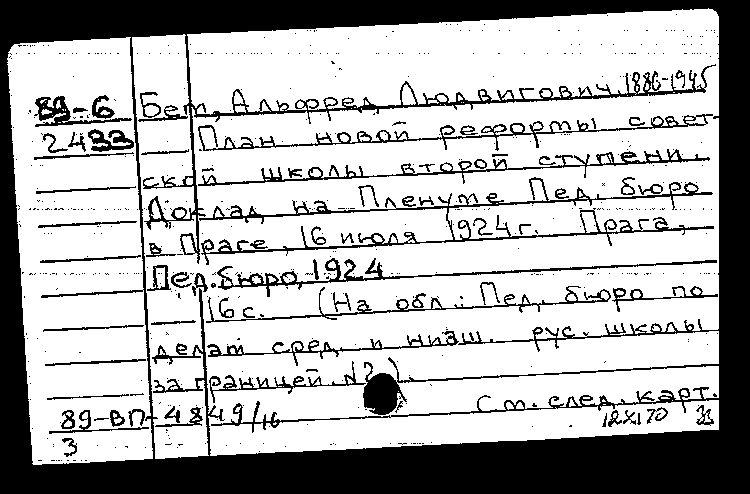 89-6 Бем, Альфред Людвигович, 1886-1945
2433 План новой реформы совет-
ской школы второй ступени.
Доклад на Пленуме Пед. бюро
в Праге, 16 июля 1924 г. Прага,
Пед. бюро, 1924
16 с. (На обл.: Пед. бюро по
делам сред. и низш. рус. школы
за границей. №2).
89-ВП-4849/16 См. след. карт.
3 12 XI 70